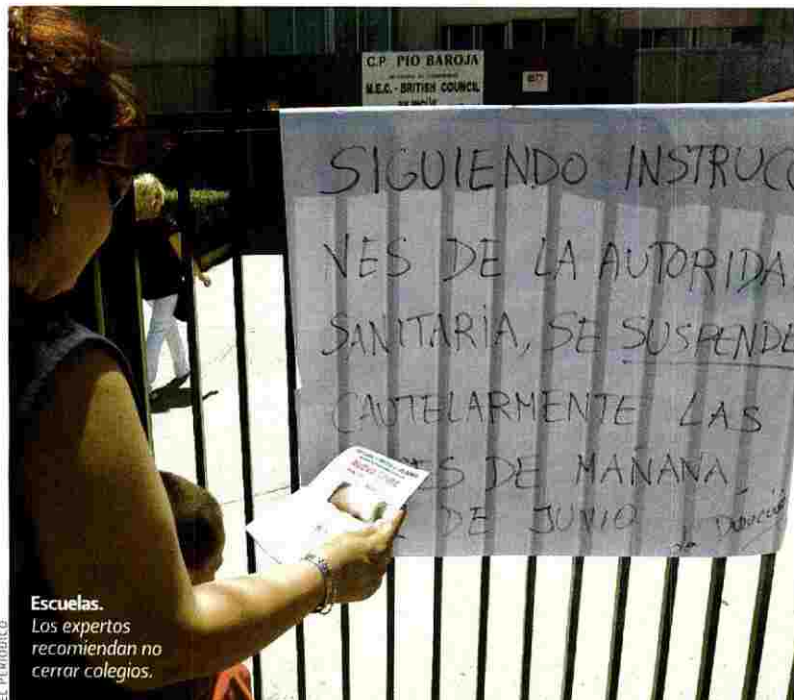 C.P. PIO BAROJA
M.E.C. - BRITISH COUNCIL
SIGUIENDO INSTRUCC
NES DE LA AUTORIDA
SANITARIA, SE SUSPENDE
CAUTELARMENTE LAS
ES DE MAÑANA,
DE JUNIO
La Dirección
Escuelas.
Los expertos
recomiendan no
cerrar colegios.
EL PERIÓDICO